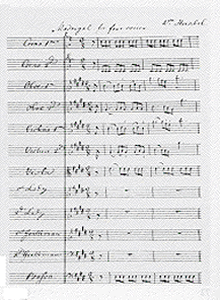 Madrigal for four voices
Wm Herschel
Corno 1mo
Corno 2do
Oboe 1mo
Oboe 2do
Violino 1mo
Violino 2do
Viola
1st Lady
2d Lady
1st Gentleman
2d Gentleman
Basso